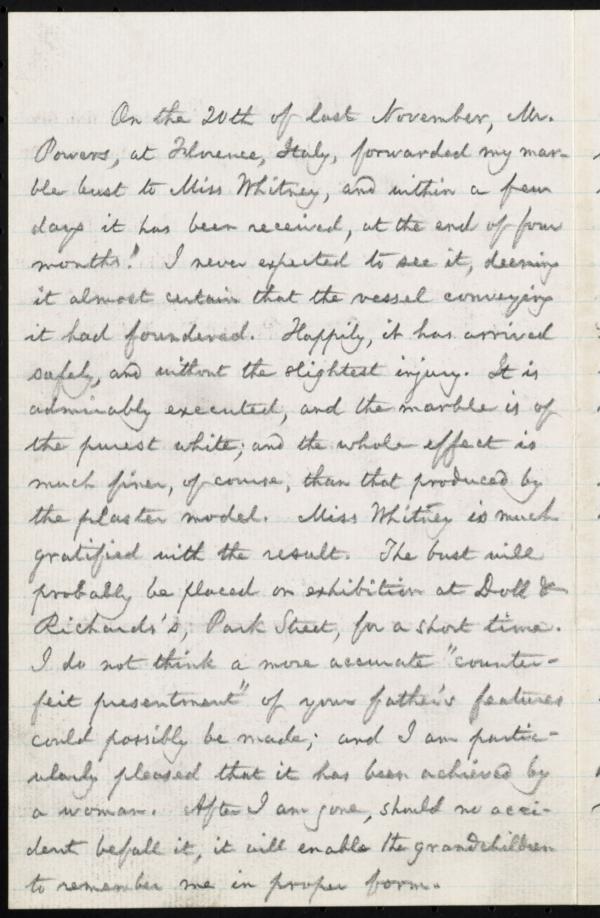 On the 20th of last November, Mr.
Powers, at Florence, Italy, forwarded my mar-
ble bust to Miss Whitney, and within a few
days it has been received, at the end of four
months! I never expected to see it, deeming
it almost certain that the vessel conveying
it had foundered. Happily, it has arrived
safely, and without the slightest injury. It is
admirably executed, and the marble is of
the purest white; and the whole effect is
much finer, of course, than that produced by
the plaster model. Miss Whitney is much
gratified with the result. The bust will
probably be placed on exhibition at Doll &
Richards's, Park Street, for a short time.
I do not think a more accurate "counter-
feit presentment" of your father's features
could possibly be made; and I am partic-
ularly pleased that it has been achieved by
a woman. After I am gone, should no acci-
dent befall it, it will enable the grandchildren
to remember me in proper form.